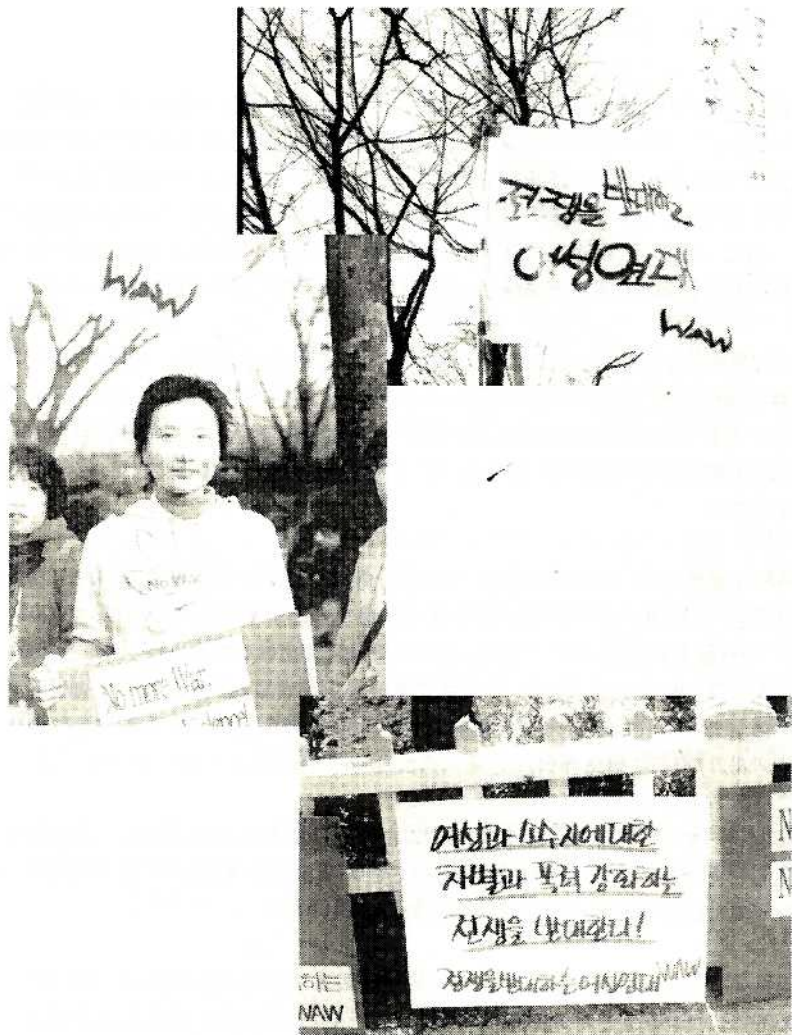 전쟁을 반대하는
여성연대
WAW
WAW
No more War
여성과 소수자에대한
차별과 폭력 강화하는
전쟁을 반대한다!
전쟁을반대하는여성연대 WAW
하는
WAW
N
N